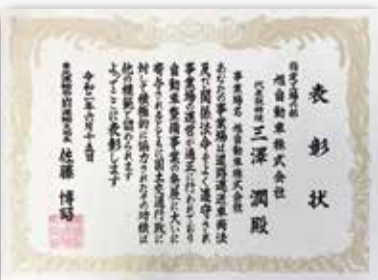 表彰状
指定工場の部
旭自動車株式会社
代表取締役 三澤 潤 殿
事業場名 旭自動車株式会社
あなたの事業場は道路運送車両法
及び関係法令をよく遵守され
事業場の運営が適正に行われており
自動車整備事業の発展に大いに
寄与されるとともに国土交通行政に
対して積極的に協力されたその功績は
他の模範と認められます
よってここに表彰します
令和二年六月十五日
佐藤 博昭